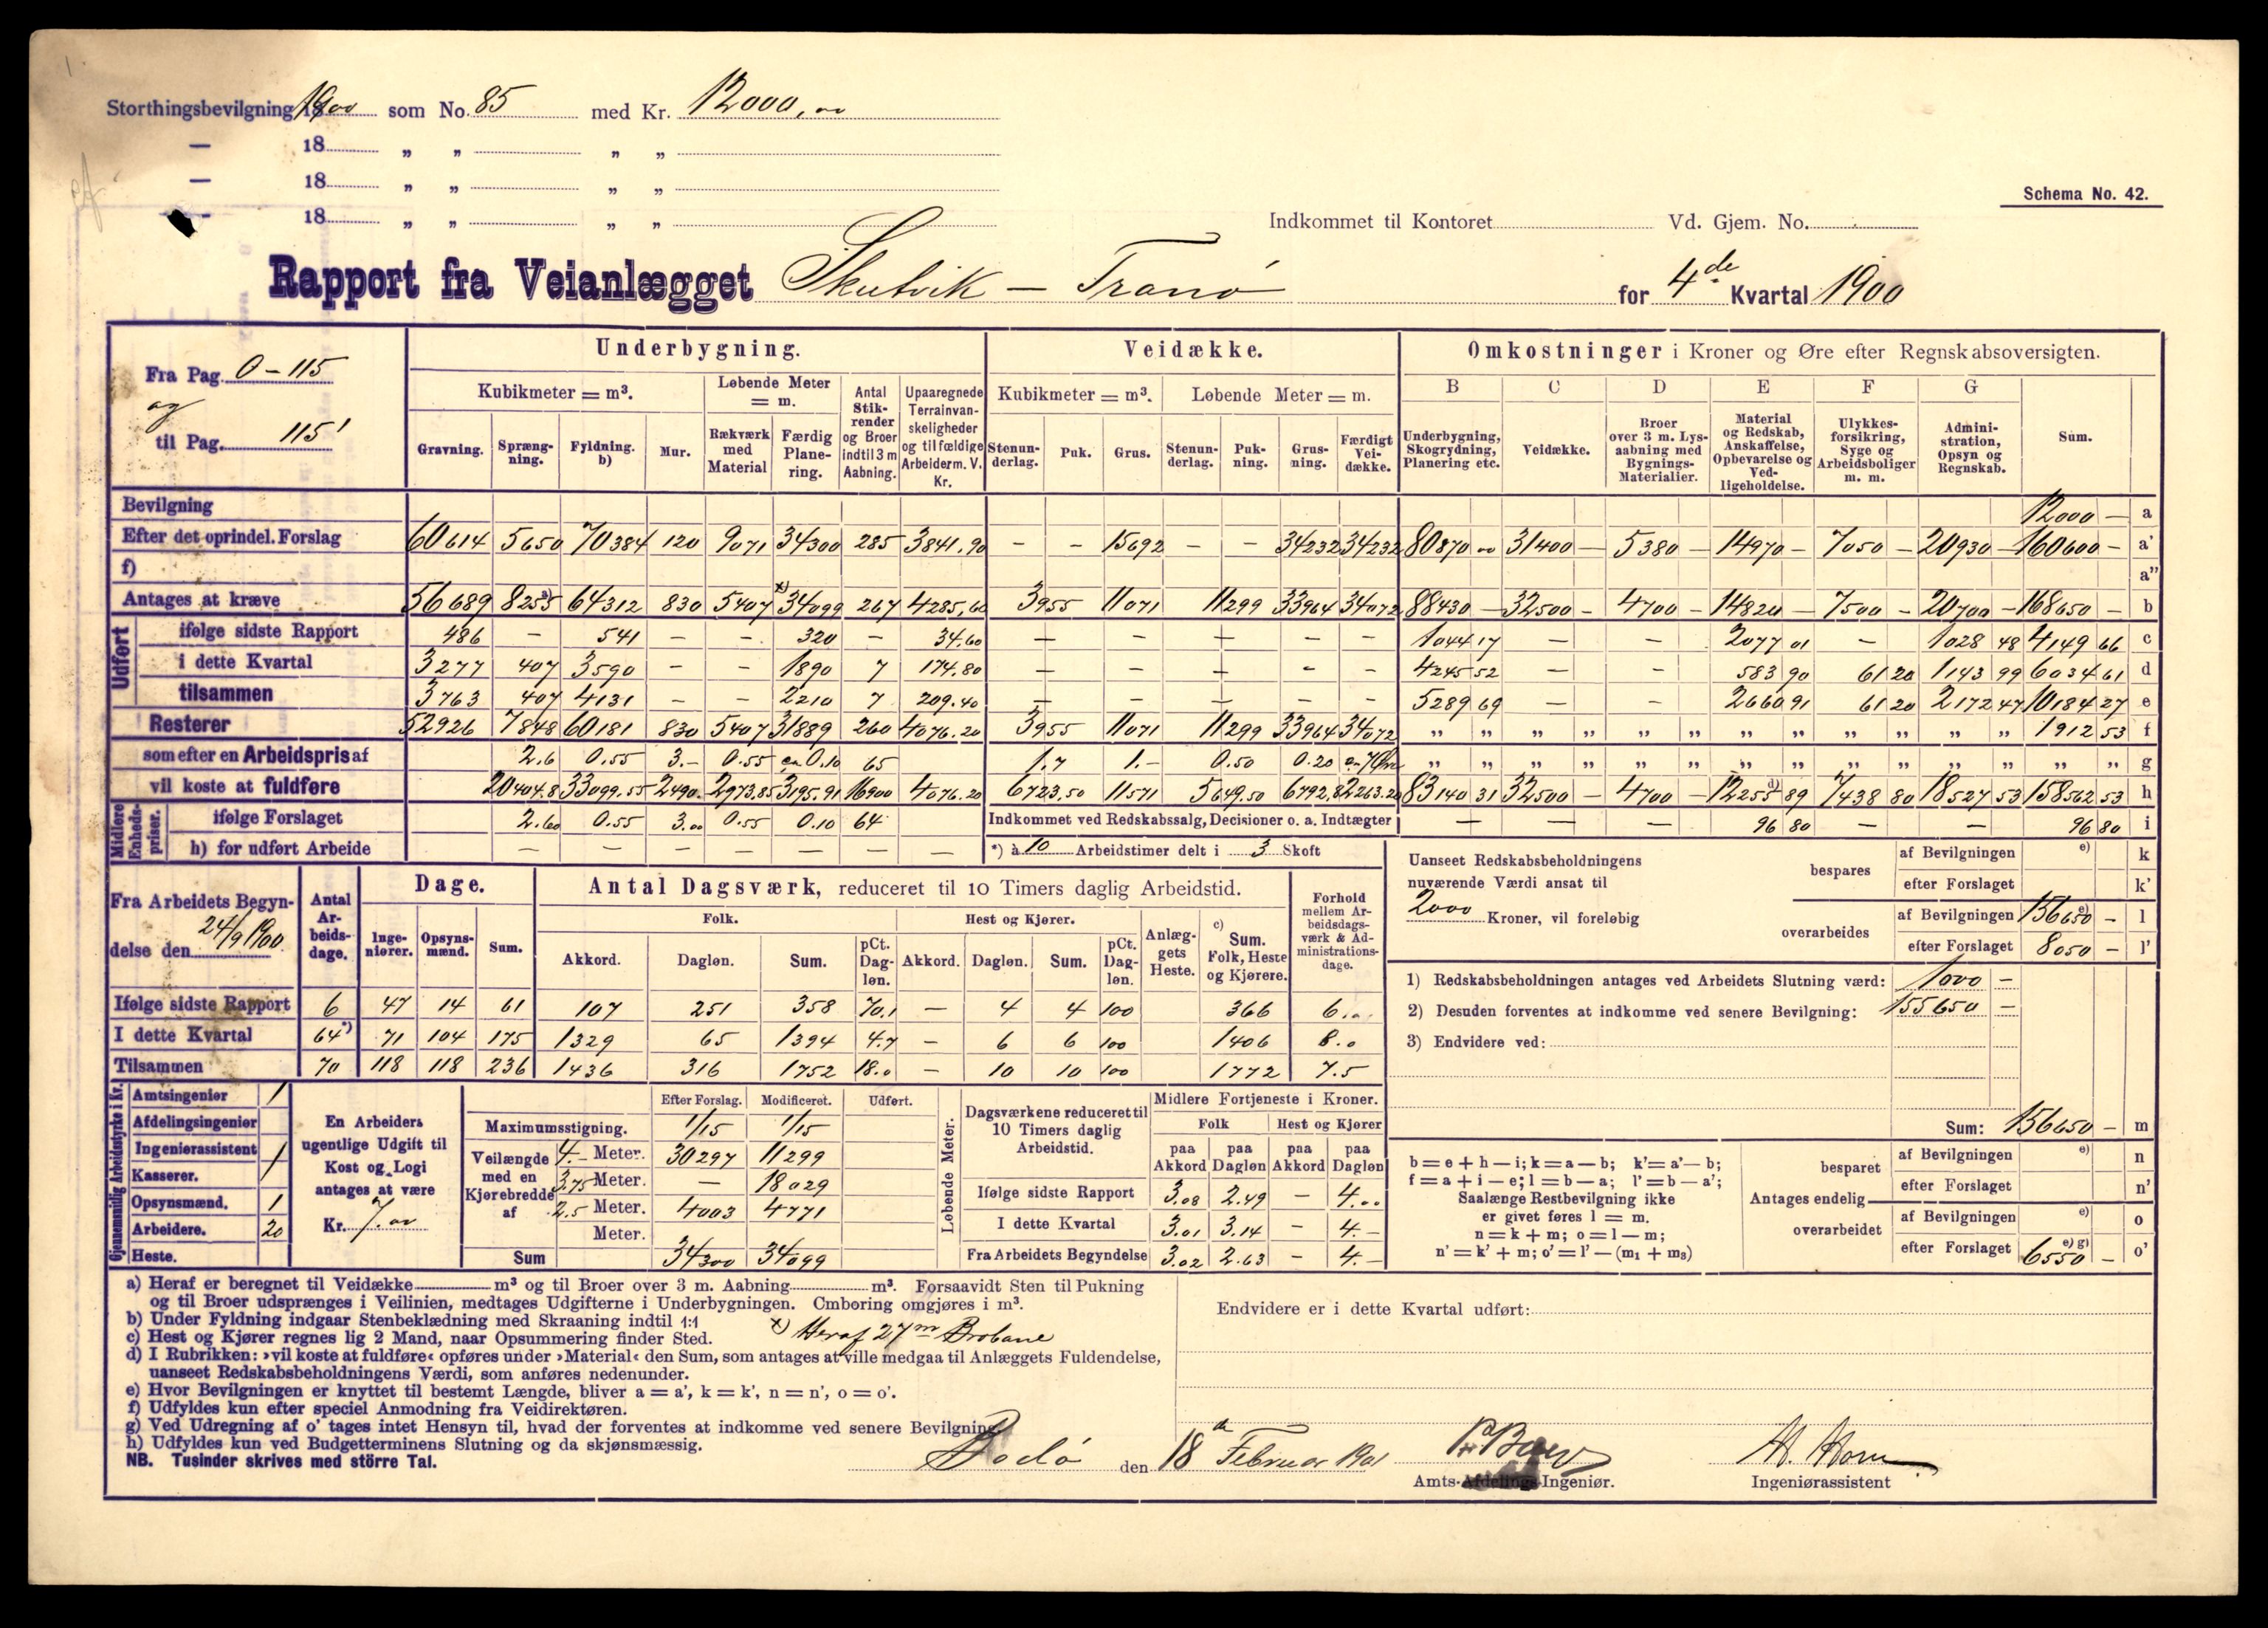 Storthingsbevilgning 1900 som No. 85 med Kr. 12000,00
— 18 „ „ „ „
— 18 „ „ „ „
— 18 „ „ „ „
Schema No. 42.
Indkommet til Kontoret Vd. Gjem. No.
Rapport fra Veianlægget Skutvik — Tranö for 4de Kvartal 1900
Fra Pag. 0 – 115
og
til Pag. 115'
Underbygning. Veidække. Omkostninger i Kroner og Øre efter Regnskabsoversigten.
Kubikmeter = m³. Løbende Meter = m. Antal Stikrender og Broer indtil 3 m Aabning. Upaaregnede Terrainvanskeligheder og tilfældige Arbeiderm. V. Kr. Kubikmeter = m³. Løbende Meter = m. B C D E F G
Gravning. Sprængning. Fyldning. b) Mur. Rækværk med Material Færdig Planering. Stenunderlag. Puk. Grus. Stenunderlag. Pukning. Grusning. Færdigt Veidække. Underbygning, Skogrydning, Planering etc. Veidække. Broer over 3 m. Lysaabning med Bygnings-Materialier. Material og Redskab, Anskaffelse, Opbevarelse og Vedligeholdelse. Ulykkesforsikring, Syge og Arbeidsboliger m. m. Administration, Opsyn og Regnskab. Sum.
Bevilgning 12000 — a
Efter det oprindel. Forslag 60614 5650 70384 120 9071 34300 285 3841.90 – – 15692 – – 34232 34232 80870 00 31400 – 5380 – 14970 – 7050 – 20930 – 160600 – a'
f) a"
Antages at kræve 56689 8255 a) 64312 830 5407 x) 34099 267 4285,60 3955 11071 11299 33964 34072 88430 – 32500 – 4700 – 14820 – 7500 – 20700 – 168650 – b
Udført
ifølge sidste Rapport 486 – 541 – – 320 – 34.60 – – – – – 1044 17 – – 2077 01 – 1028 48 4149 66 c
i dette Kvartal 3277 407 3590 – – 1890 7 174.80 – – – – – 4245 52 – – 583 90 61 20 1143 99 6034 61 d
tilsammen 3763 407 4131 – – 2210 7 209.40 – – – – – 5289 69 – – 2660 91 61 20 2172 47 10184 27 e
Resterer 52926 7848 60181 830 5407 31889 260 4076.20 3955 11071 11299 33964 34072 „ „ „ „ „ „ „ „ „ „ „ „ 1912 53 f
som efter en Arbeidspris af 2.6 0.55 3.– 0.55 ca 0.10 65 1.7 1.– 0.50 0.20 „ „ „ „ „ „ „ „ „ „ „ „ „ „ g
vil koste at fuldføre 20404.8 33099.55 2490.– 2973.85 3195.91 16900 4076.20 6723.50 11571 5649.50 6792.8 2263.20 83140 31 32500 – 4700 – 12255 d) 89 7438 80 18527 53 158562 53 h
Midlere Enhedspriser.
ifølge Forslaget 2.60 0.55 3.00 0.55 0.10 64 Indkommet ved Redskabssalg, Decisioner o. a. Indtægter – – – 96 80 – – 96 80 i
h) for udført Arbeide – – – – – – – *) à 10 Arbeidstimer delt i 3 Skoft
Uanseet Redskabsbeholdningens nuværende Værdi ansat til 2000 Kroner, vil foreløbig
bespares af Bevilgningen e) k
efter Forslaget k'
overarbeides af Bevilgningen 156650 e) – l
efter Forslaget 8050 – l'
Fra Arbeidets Begyndelse den 24/9 1900
Antal Arbeidsdage. Dage. Antal Dagsværk, reduceret til 10 Timers daglig Arbeidstid. Forhold mellem Arbeidsdagsværk & Administrationsdage.
Ingeniører. Opsynsmænd. Sum. Folk. Hest og Kjører. Anlæggets Heste. c) Sum. Folk, Heste og Kjørere.
Akkord. Dagløn. Sum. pCt. Dagløn. Akkord. Dagløn. Sum. pCt. Dagløn.
Ifølge sidste Rapport 6 47 14 61 107 251 358 70.1 – 4 4 100 366 6.0
I dette Kvartal 64 *) 71 104 175 1329 65 1394 4.7 – 6 6 100 1406 8.0
Tilsammen 70 118 118 236 1436 316 1752 18.0 – 10 10 100 1772 7.5
1) Redskabsbeholdningen antages ved Arbeidets Slutning værd: 1000 –
2) Desuden forventes at indkomme ved senere Bevilgning: 155650 –
3) Endvidere ved:
Sum: 156650 – m
Gjennemsnitlig Arbeidsstyrke i Kr.
Amtsingeniør 1
Afdelingsingeniør
Ingeniørassistent 1
Kasserer.
Opsynsmænd. 1
Arbeidere. 20
Heste.
En Arbeiders ugentlige Udgift til Kost og Logi antages at være
Kr. 7.00
Efter Forslag. Modificeret. Udført.
Maximumsstigning. 1/15 1/15
Veilængde med en Kjørebredde af
4.– Meter. 30297 11299
3.75 Meter. – 18029
2.5 Meter. 4003 4771
Meter.
Sum 34300 34099
Løbende Meter.
Dagsværkene reduceret til 10 Timers daglig Arbeidstid. Midlere Fortjeneste i Kroner.
Folk Hest og Kjører
paa Akkord paa Dagløn paa Akkord paa Dagløn
Ifølge sidste Rapport 3.08 2.49 – 4.00
I dette Kvartal 3.01 3.14 – 4.–
Fra Arbeidets Begyndelse 3.02 2.63 – 4.–
b = e + h — i; k = a — b; k' = a' — b;
f = a + i — e; l = b — a; l' = b — a';
Saalænge Restbevilgning ikke
er givet føres l = m.
n = k + m; o = l — m;
n' = k' + m; o' = l' — (m₁ + m₃)
Antages endelig
besparet af Bevilgningen e) n
efter Forslaget n'
overarbeidet af Bevilgningen e) o
efter Forslaget 6550 e) g) – o'
a) Heraf er beregnet til Veidække m³ og til Broer over 3 m. Aabning m³. Forsaavidt Sten til Pukning
og til Broer udsprænges i Veilinien, medtages Udgifterne i Underbygningen. Omboring omgjøres i m³.
b) Under Fyldning indgaar Stenbeklædning med Skraaning indtil 1:1
c) Hest og Kjører regnes lig 2 Mand, naar Opsummering finder Sted.
x) Heraf 27m Brobane
d) I Rubrikken: »vil koste at fuldføre« opføres under »Material« den Sum, som antages at ville medgaa til Anlæggets Fuldendelse,
uanseet Redskabsbeholdningens Værdi, som anføres nedenunder.
e) Hvor Bevilgningen er knyttet til bestemt Længde, bliver a = a', k = k', n = n', o = o'.
f) Udfyldes kun efter speciel Anmodning fra Veidirektøren.
g) Ved Udregning af o' tages intet Hensyn til, hvad der forventes at indkomme ved senere Bevilgning.
h) Udfyldes kun ved Budgetterminens Slutning og da skjønsmæssig.
NB. Tusinder skrives med større Tal.
Endvidere er i dette Kvartal udført:
Bodö den 18de Februar 1901
Amts-Afdelings-Ingeniør.
H. Horn
Ingeniørassistent